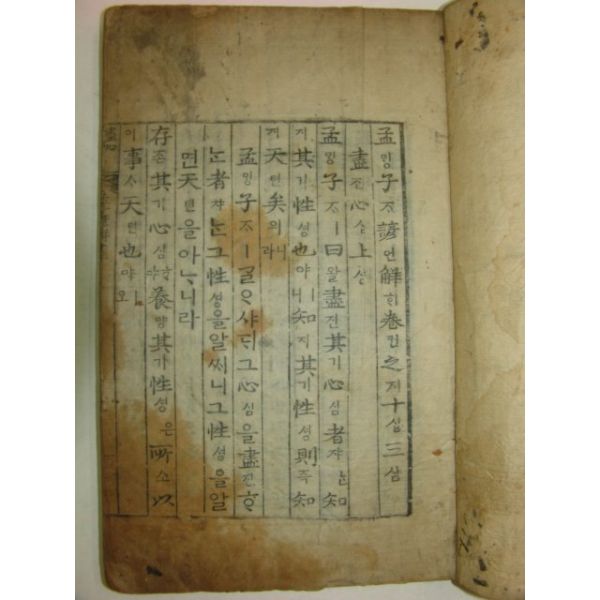 孟ᄆᆡᆼ子ᄌᆞ諺언解ᄒᆡ卷권之지十십三삼
盡진心심上샹
孟ᄆᆡᆼ子ᄌᆞㅣ曰왈盡진其기心심者쟈ᄂᆞᆫ知
지其기性셩也야ㅣ니知지其기性셩則즉知
지天텬矣의니라
孟ᄆᆡᆼ子ᄌᆞㅣᄀᆞᆯᄋᆞ샤ᄃᆡ그心심을盡진ᄒᆞ
ᄂᆞᆫ者쟈ᄂᆞᆫ그性셩을알ᄊᆡ니그性셩을알
면天텬을아ᄂᆞ니라
存존其기心심ᄒᆞ야養양其기性셩은所소以
이事ᄉᆞ天텬也야ㅣ오